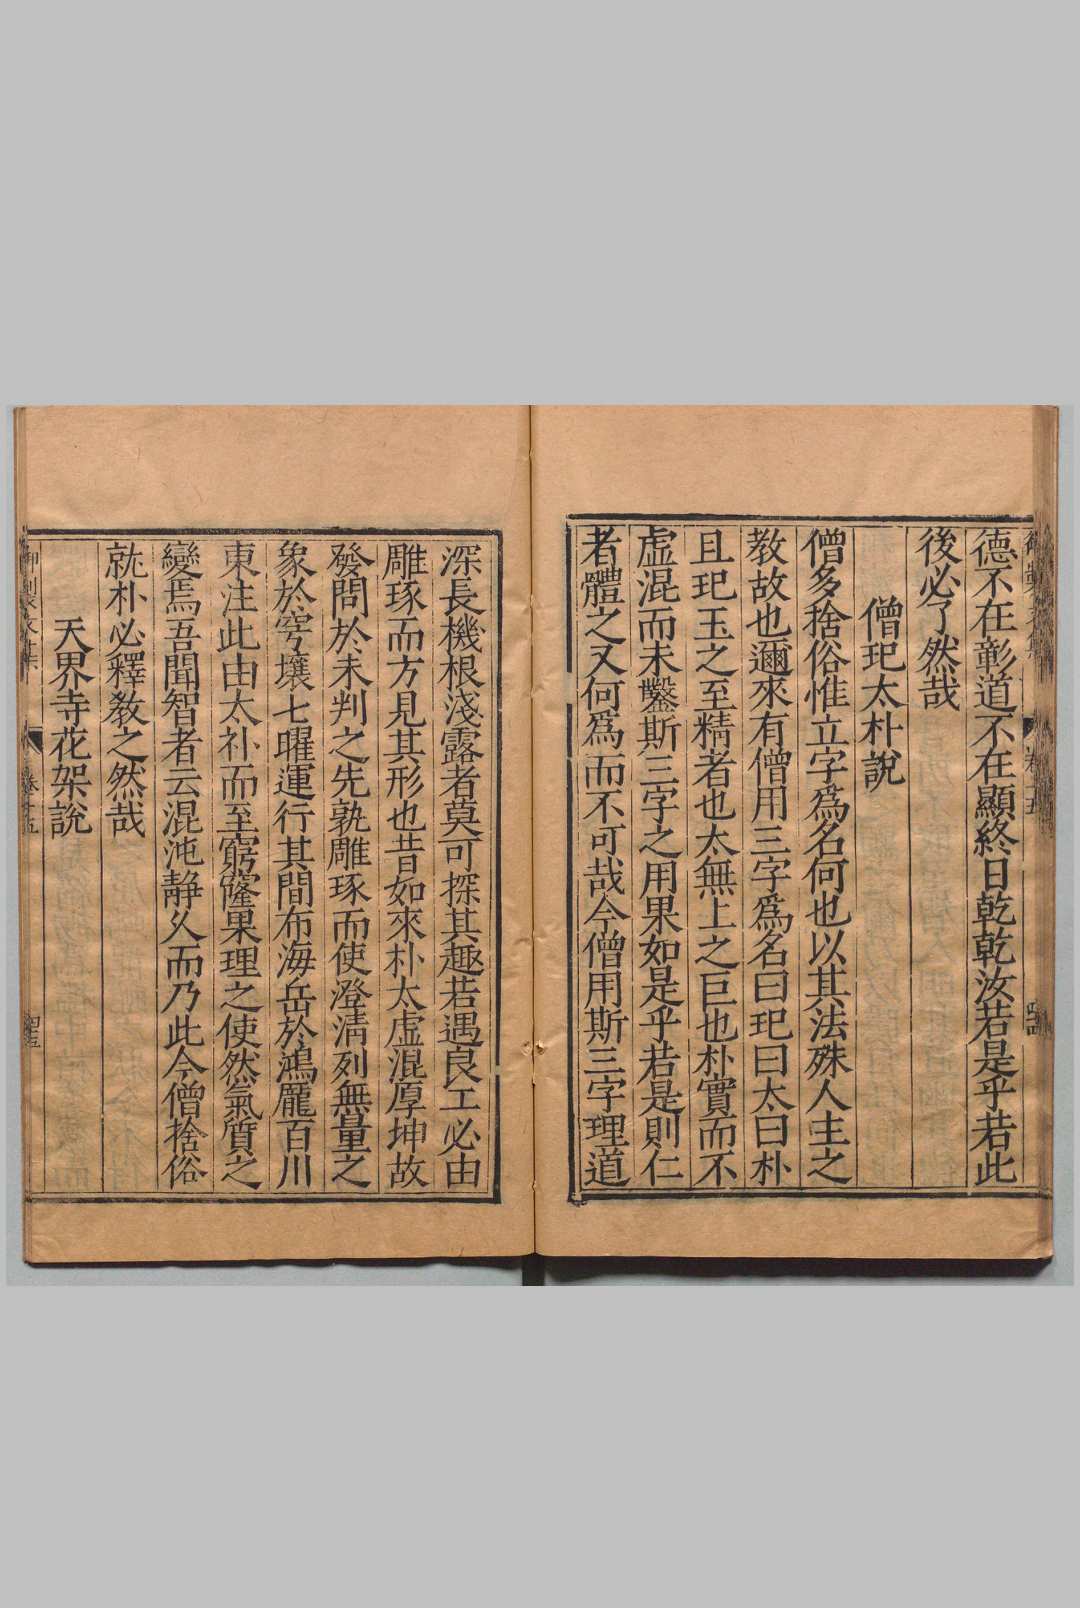 德不在彰道不在顯終日乾乾汝若是乎若此
後必了然哉
僧玘太朴說
僧多捨俗惟立字爲名何也以其法殊人主之
教故也邇來有僧用三字爲名曰玘曰太曰朴
且玘玉之至精者也太無上之巨也朴實而不
虛混而未鑿斯三字之用果如是乎若是則仁
者體之又何爲而不可哉今僧用斯三字理道
深長機根淺露者莫可探其趣若遇良工必由
雕琢而方見其形也昔如來朴太虛混厚坤故
發問於未判之先孰雕琢而使澄清列無量之
象於穹壤七曜運行其間布海岳於鴻龐百川
東注此由太朴而至窮窿果理之使然氣質之
變焉吾聞智者云混沌靜久而乃此今僧捨俗
就朴必釋教之然哉
天界寺花架說